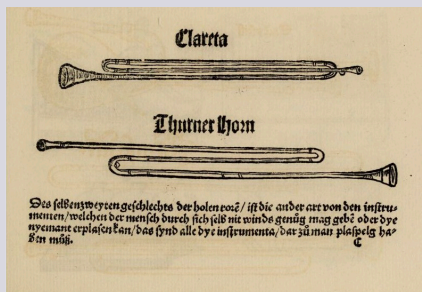 Clareta
Thurner Horn
Des selbenzweyten geschlechts der holen rorē / ist die ander art von den instru-
menten / welchen der mensch durch sich selb nit winds genůg mag gebē oder dye
nyemant erplasen kan / das synd alle dye instrumenta / dar zů man plaspelg ha-
ben můß.
C